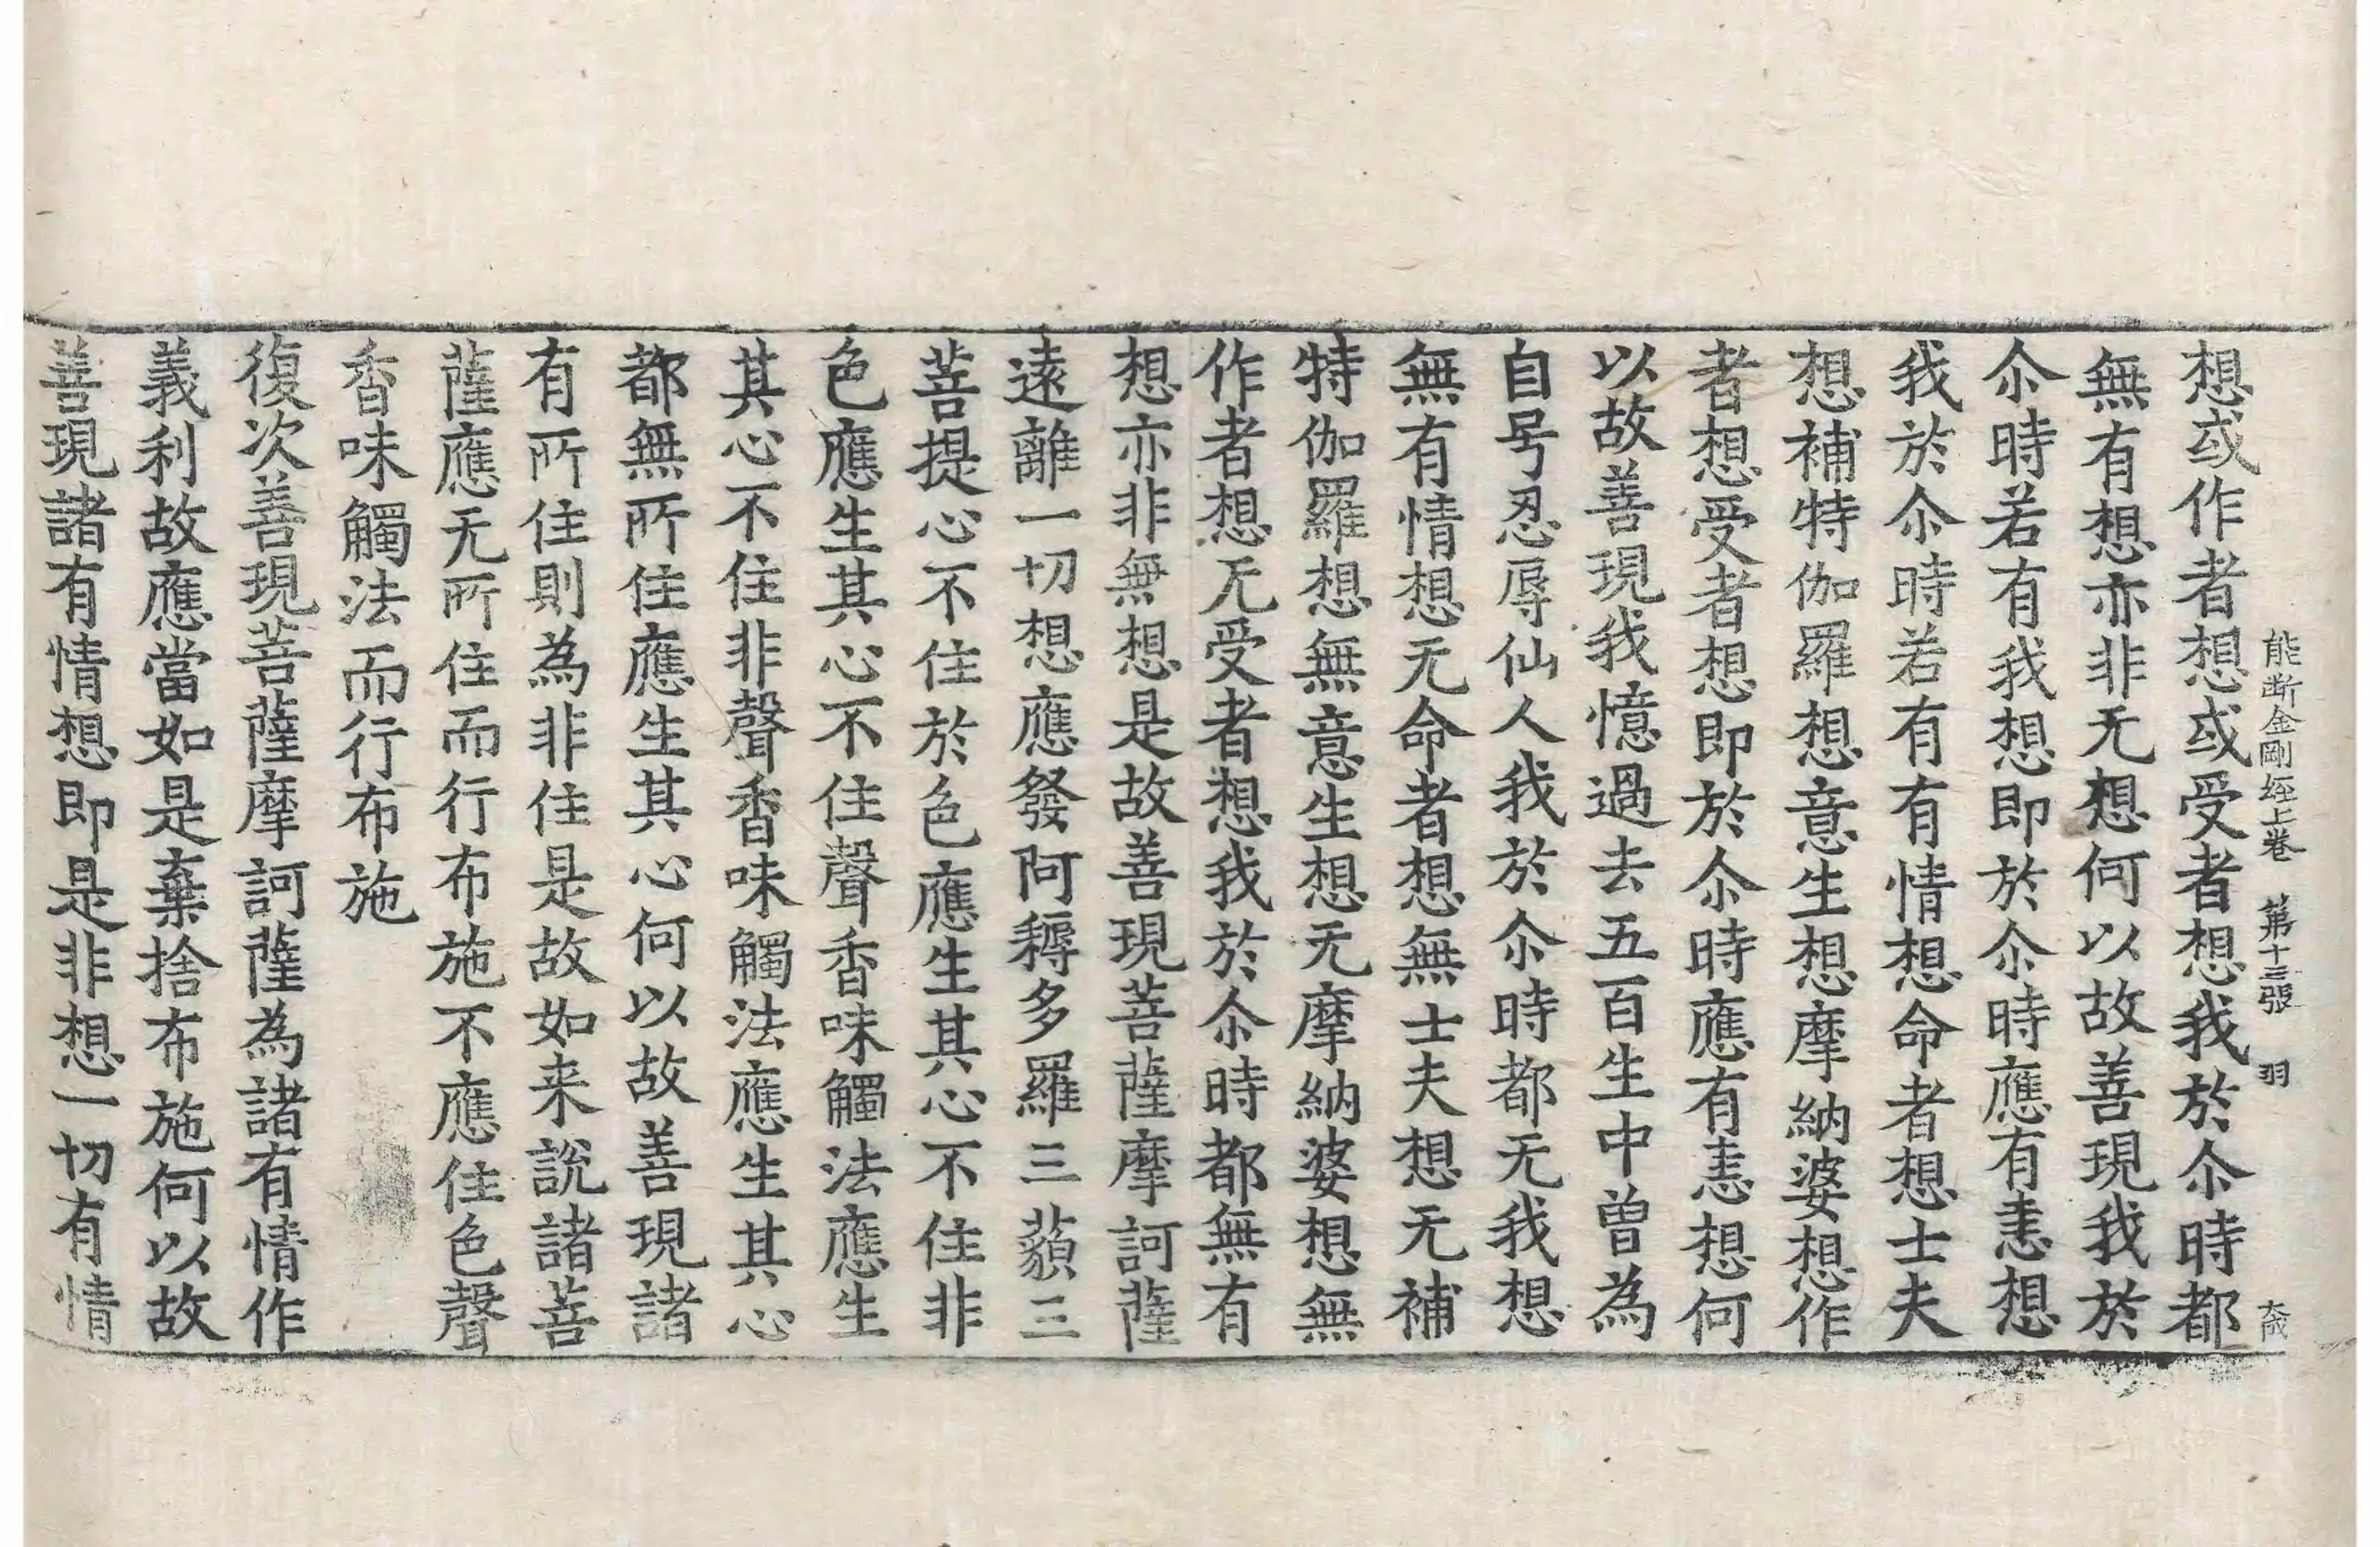 能断金剛经上卷　第十三張　羽　大成
想或作者想或受者想我於尒時都
無有想亦非无想何以故善現我於
尒時若有我想即於尒時應有恚想
我於尒時若有有情想命者想士夫
想補特伽羅想意生想摩納婆想作
者想受者想即於尒時應有恚想何
以故善現我憶過去五百生中曽為
自号忍辱仙人我於尒時都无我想
無有情想无命者想無士夫想无補
特伽羅想無意生想无摩納婆想無
作者想无受者想我於尒時都無有
想亦非無想是故善現菩薩摩訶薩
遠離一切想應發阿耨多羅三藐三
菩提心不住於色應生其心不住非
色應生其心不住聲香味觸法應生
其心不住非聲香味觸法應生其心
都無所住應生其心何以故善現諸
有所住則為非住是故如来說諸菩
薩應无所住而行布施不應住色聲
香味觸法而行布施
復次善現菩薩摩訶薩為諸有情作
義利故應當如是棄捨布施何以故
善現諸有情想即是非想一切有情